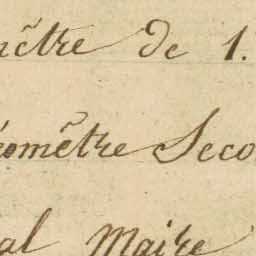 mêtre de 1.
éomêtre Seco
al Maire